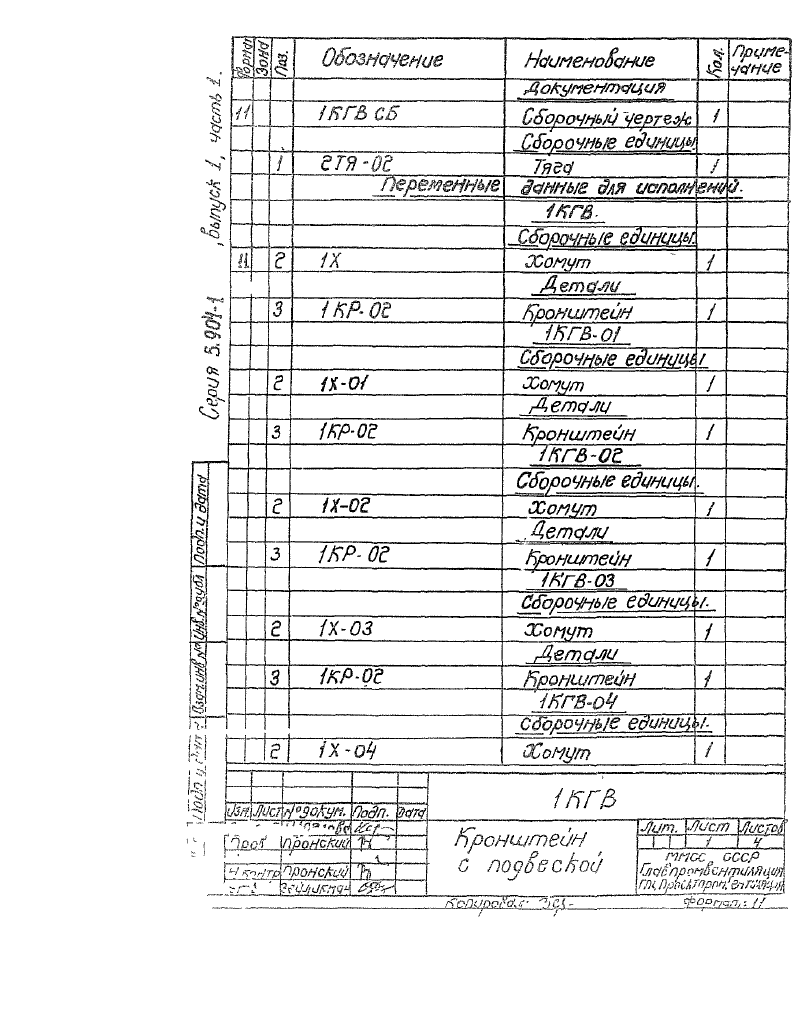 Серия 5.904-1 ,выпуск 1, часть 1.
Формат Зона Поз. Обозначение Наименование Кол. Приме-
чание
Документация
11 1КГВ СБ Сборочный чертеж 1
Сборочные единицы
1 2ТЯ-02 Тяга 1
Переменные данные для исполнений.
1КГВ.
Сборочные единицы.
11 2 1Х Хомут 1
Детали
3 1КР-02 Кронштейн 1
1КГВ-01
Сборочные единицы
2 1Х-01 Хомут 1
Детали
3 1КР-02 Кронштейн 1
1КГВ-02
Сборочные единицы.
2 1Х-02 Хомут 1
Детали
3 1КР-02 Кронштейн 1
1КГВ-03
Сборочные единицы.
2 1Х-03 Хомут 1
Детали
3 1КР-02 Кронштейн 1
1КГВ-04
Сборочные единицы.
2 1Х-04 Хомут 1
Подп. и дата
Инв № дубл
Взам инв №
Подп и дата
1КГВ
Изм. Лист № докум. Подп. Дата
Пров Пронский
Н контр Пронский
Кронштейн
с подвеской
Лит. Лист Листов
1 4
ММСС СССР
Главпромвентиляция
Копировал: Формат: 11